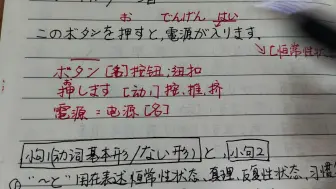 お でんげん はい
このボタンを押すと、電源が入ります。
→[恒常性状
ボタン[名]按钮;纽扣
押します[动1]按、推、挤
電源=电源[名]
小句1(动词基本形/ない形)と,小句2
①"~と"用在表述恒常性状态、真理、反复性状态、习惯